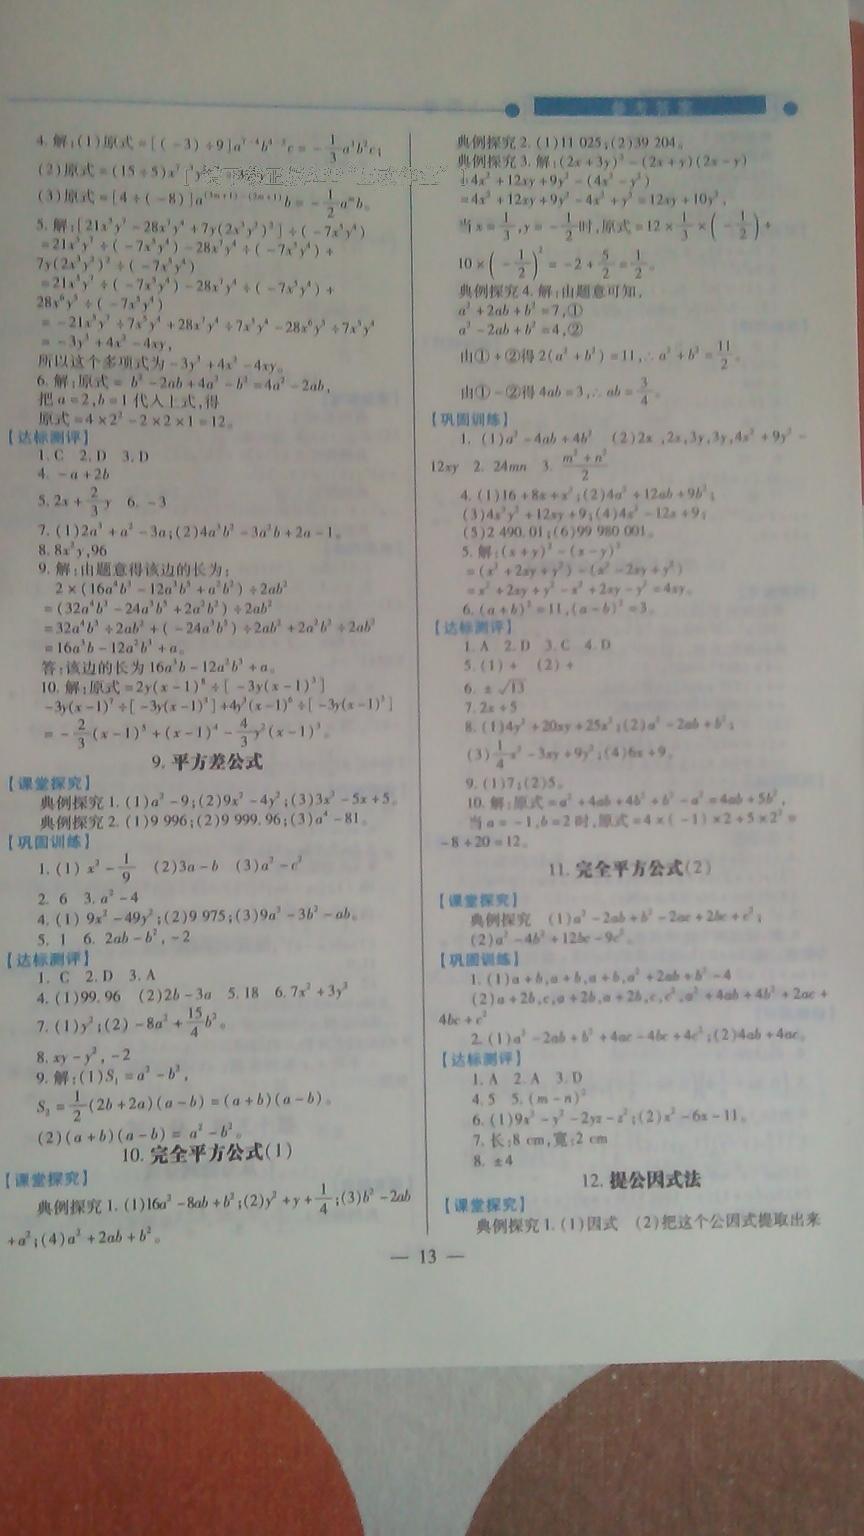 参考答案
4. 解:(1)原式=[(-3)÷9]a⁷⁻⁴b⁴⁻²c=-1/3a³b²c;
(2)原式=(15÷5)x⁷⁻³y
(3)原式=[4÷(-8)]a⁽³ᵐ⁺¹⁾⁻⁽²ᵐ⁺¹⁾b=-1/2aᵐb。
5. 解:[21x⁵y⁷-28x⁷y⁴+7y(2x³y²)²]÷(-7x⁵y⁴)
=21x⁵y⁷÷(-7x⁵y⁴)-28x⁷y⁴÷(-7x⁵y⁴)+
7y(2x³y²)²÷(-7x⁵y⁴)
=21x⁵y⁷÷(-7x⁵y⁴)-28x⁷y⁴÷(-7x⁵y⁴)+
28x⁶y⁵÷(-7x⁵y⁴)
=-21x⁵y⁷÷7x⁵y⁴+28x⁷y⁴÷7x⁵y⁴-28x⁶y⁵÷7x⁵y⁴
=-3y³+4x²-4xy,
所以这个多项式为-3y³+4x²-4xy。
6. 解:原式=b²-2ab+4a²-b²=4a²-2ab,
把a=2,b=1代入上式,得
原式=4×2²-2×2×1=12。
【达标测评】
1. C 2. D 3. D
4. -a+2b
5. 2x+2/3y 6. -3
7. (1)2a³+a²-3a;(2)4a³b²-3a²b+2a-1。
8. 8x²y,96
9. 解:由题意得该边的长为:
2×(16a⁴b³-12a³b⁵+a²b²)÷2ab²
=(32a⁴b³-24a³b⁵+2a²b²)÷2ab²
=32a⁴b³÷2ab²+(-24a³b⁵)÷2ab²+2a²b²÷2ab²
=16a³b-12a²b³+a。
答:该边的长为16a³b-12a²b³+a。
10. 解:原式=2y(x-1)⁸÷[-3y(x-1)³]
-3y(x-1)⁷÷[-3y(x-1)³]+4y³(x-1)⁶÷[-3y(x-1)³]
=-2/3(x-1)⁵+(x-1)⁴-4/3y²(x-1)³。
9. 平方差公式
【课堂探究】
典例探究1. (1)a²-9;(2)9x²-4y²;(3)3x²-5x+5。
典例探究2. (1)9 996;(2)9 999. 96;(3)a⁴-81。
【巩固训练】
1. (1) x²-1/9 (2)3a-b (3)a²-c²
2. 6 3. a²-4
4. (1) 9x²-49y²;(2)9 975;(3)9a²-3b²-ab。
5. 1 6. 2ab-b²,-2
【达标测评】
1. C 2. D 3. A
4. (1)99. 96 (2)2b-3a 5. 18 6. 7x²+3y²
7. (1)y²;(2)-8a²+15/4b²。
8. xy-y²,-2
9. 解:(1)S₁=a²-b²,
S₂=1/2(2b+2a)(a-b)=(a+b)(a-b)。
(2)(a+b)(a-b)=a²-b²。
10. 完全平方公式(1)
【课堂探究】
典例探究1. (1)16a²-8ab+b²;(2)y²+y+1/4;(3)b²-2ab
+a²;(4)a²+2ab+b²。
典例探究2. (1)11 025;(2)39 204。
典例探究3. 解:(2x+3y)²-(2x+y)(2x-y)
=4x²+12xy+9y²-(4x²-y²)
=4x²+12xy+9y²-4x²+y²=12xy+10y²,
当x=1/3,y=-1/2时,原式=12×1/3×(-1/2)+
10×(-1/2)²=-2+5/2=1/2。
典例探究4. 解:由题意可知,
a²+2ab+b²=7,①
a²-2ab+b²=4,②
由①+②得2(a²+b²)=11,∴a²+b²=11/2。
由①-②得4ab=3,∴ab=3/4。
【巩固训练】
1. (1)a²-4ab+4b² (2)2x,2x,3y,3y,4x²+9y²-
12xy 2. 24mn 3. (m²+n²)/2
4. (1)16+8x+x²;(2)4a²+12ab+9b²;
(3)4x²y²+12xy+9;(4)4x²-12x+9;
(5)2 490. 01;(6)99 980 001。
5. 解:(x+y)²-(x-y)²
=(x²+2xy+y²)-(x²-2xy+y²)
=x²+2xy+y²-x²+2xy-y²=4xy。
6. (a+b)²=11,(a-b)²=3。
【达标测评】
1. A 2. D 3. C 4. D
5. (1)+ (2)+
6. ±√13
7. 2x+5
8. (1)4y²+20xy+25x²;(2)a²-2ab+b²;
(3)1/4x²-3xy+9y²;(4)6x+9。
9. (1)7;(2)5。
10. 解:原式=a²+4ab+4b²+b²-a²=4ab+5b²,
当a=-1,b=2时,原式=4×(-1)×2+5×2²=
-8+20=12。
11. 完全平方公式(2)
【课堂探究】
典例探究 (1)a²-2ab+b²-2ac+2bc+c²;
(2)a²-4b²+12bc-9c²。
【巩固训练】
1. (1)a+b,a+b,a+b,a²+2ab+b²-4
(2)a+2b,c,a+2b,a+2b,c,c²,a²+4ab+4b²+2ac+
4bc+c²
2. (1)a²-2ab+b²+4ac-4bc+4c²;(2)4ab+4ac。
【达标测评】
1. A 2. A 3. D
4. 5 5. (m-n)²
6. (1)9x²-y²-2yz-z²;(2)x²-6x-11。
7. 长:8 cm,宽:2 cm
8. ±4
12. 提公因式法
【课堂探究】
典例探究1. (1)因式 (2)把这个公因式提取出来
— 13 —